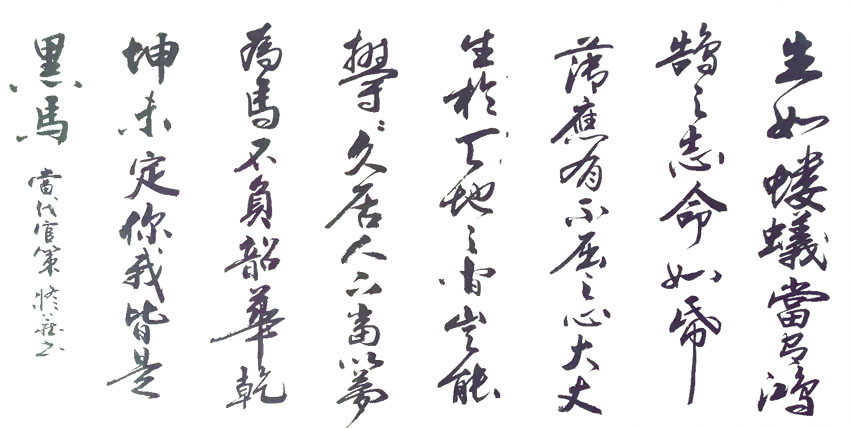 生如蝼蟻當鸿
鹄之志命如帋
薄應有不屈之心大丈
生於天地之间豈能
久居人下當以夢
為馬不負韶華乾
坤未定你我皆是
黑馬
當代官策